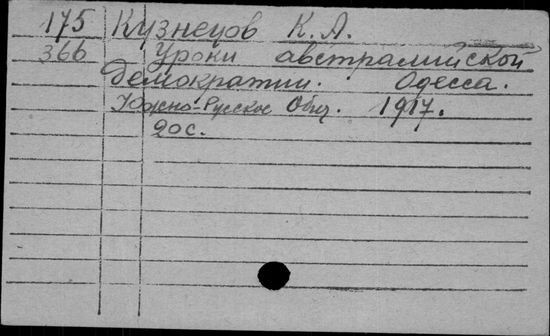 175 Кузнецов К. А.
366 Уроки австралийской
демократии. Одесса.
Южно-Русское Общ. 1917.
20 с.